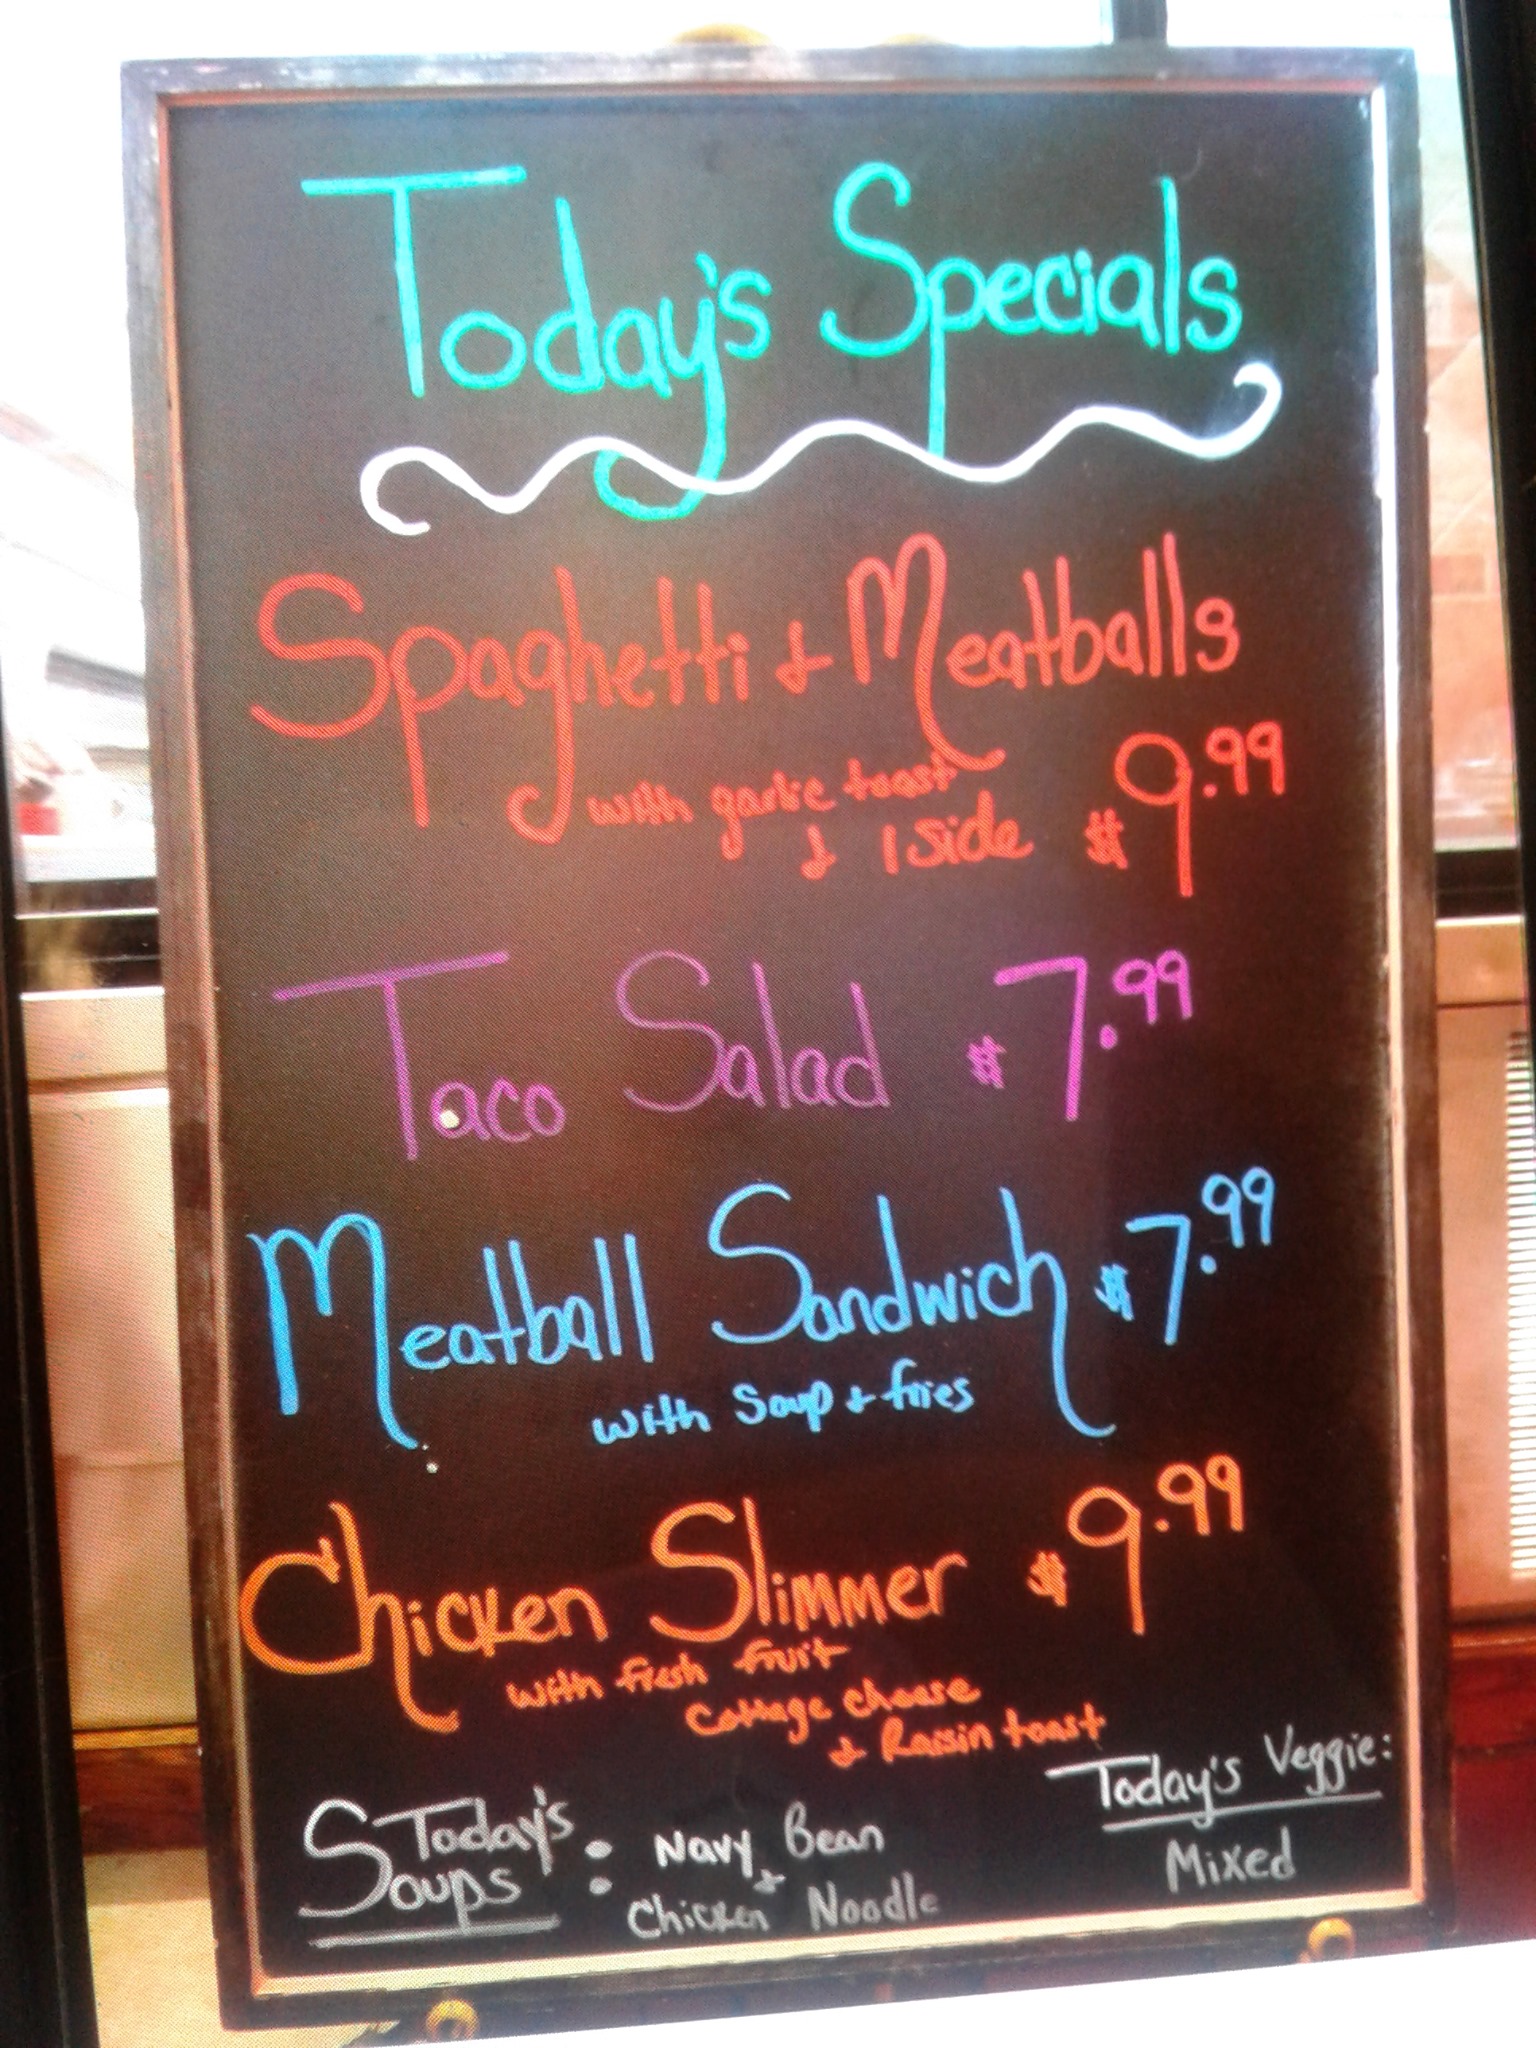 Today's Specials
Spaghetti & Meatballs
with garlic toast
& 1 side $9.99
Taco Salad $7.99
Meatball Sandwich $7.99
with Soup & fries
Chicken Slimmer $9.99
with fresh fruit
Cottage cheese
& Raisin toast
Today's
Soups :
Navy Bean
&
Chicken Noodle
Today's Veggie:
Mixed